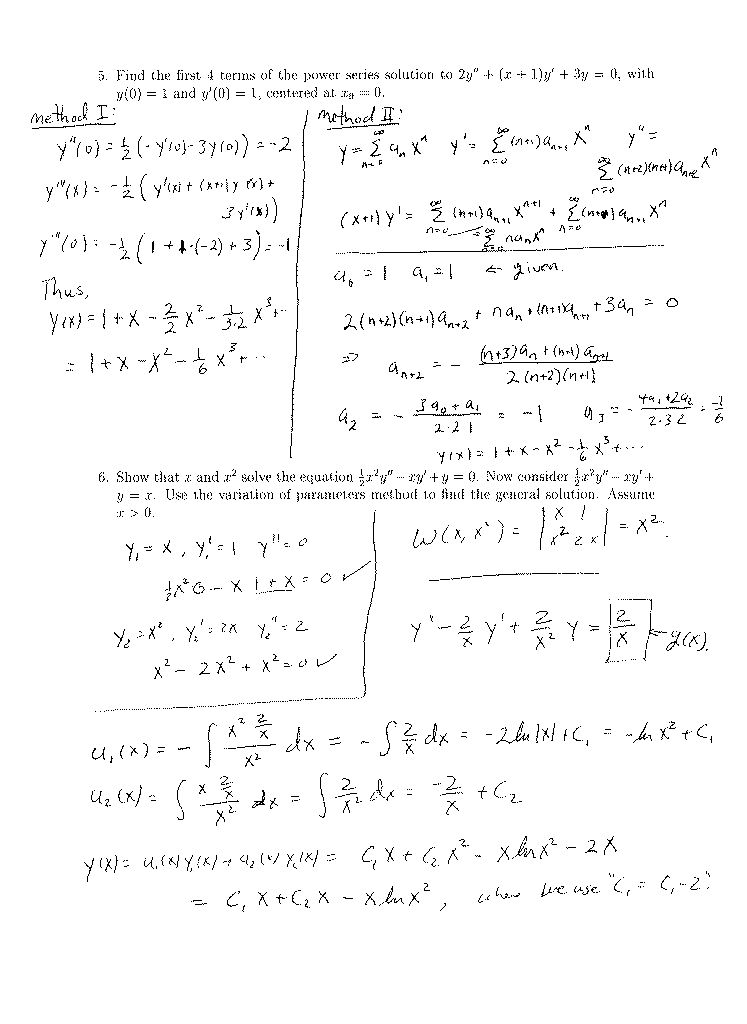 5. Find the first 4 terms of the power series solution to 2y″ + (x + 1)y′ + 3y = 0, with
y(0) = 1 and y′(0) = 1, centered at x₀ = 0.
method I:
y″(0) = ½ (- y′(0) - 3y(0)) = -2
y‴(x) = - ½ ( y′(x) + (x+1) y″(x) +
3y′(x))
y‴(0) = -½ ( 1 + 1·(-2) + 3) = -1
Thus,
y(x) = 1 + x - 2/2 x² - 1/(3·2) x³ + ··
= 1 + x - x² - 1/6 x³ + ···
method II:
y = Σ_{n=0}^∞ aₙ xⁿ y′ = Σ_{n=0}^∞ (n+1) aₙ₊₁ xⁿ y″ =
Σ_{n=0}^∞ (n+2)(n+1) aₙ₊₂ xⁿ
(x+1) y′ = Σ_{n=0}^∞ (n+1) aₙ₊₁ xⁿ⁺¹ + Σ_{n=0}^∞ (n+1) aₙ₊₁ xⁿ
= Σ_{n=0}^∞ n aₙ xⁿ
a₀ = 1 a₁ = 1 ← given.
2(n+2)(n+1) aₙ₊₂ + n aₙ + (n+1) aₙ₊₁ + 3aₙ = 0
⇒ aₙ₊₂ = - ((n+3) aₙ + (n+1) aₙ₊₁) / (2(n+2)(n+1))
a₂ = - (3a₀ + a₁)/(2·2 1) = -1 a₃ = - (4a₁ + 2a₂)/(2·3 2) = -1/6
y(x) = 1 + x - x² - 1/6 x³ + ···
6. Show that x and x² solve the equation ½x²y″ − xy′ + y = 0. Now consider ½x²y″ − xy′ +
y = x. Use the variation of parameters method to find the general solution. Assume
x > 0.
y₁ = x , y₁′ = 1 y″ = 0
½x² 0 - x 1 + x = 0 ✓
y₂ = x² , y₂′ = 2x y₂″ = 2
x² - 2x² + x² = 0 ✓
W(x, x²) = | x 1 ; x² 2x | = x².
y″ - 2/x y′ + 2/x² y = 2/x ← g(x).
u₁(x) = - ∫ (x² 2/x)/x² dx = - ∫ 2/x dx = -2 ln|x| + C₁ = -ln x² + C₁
u₂(x) = ∫ (x 2/x)/x² dx = ∫ 2/x² dx = -2/x + C₂
y(x) = u₁(x) y₁(x) + u₂(x) y₂(x) = C₁ x + C₂ x² - x ln x² - 2x
= C₁ x + C₂ x - x ln x² , where we use "C₁ = C₁ - 2".